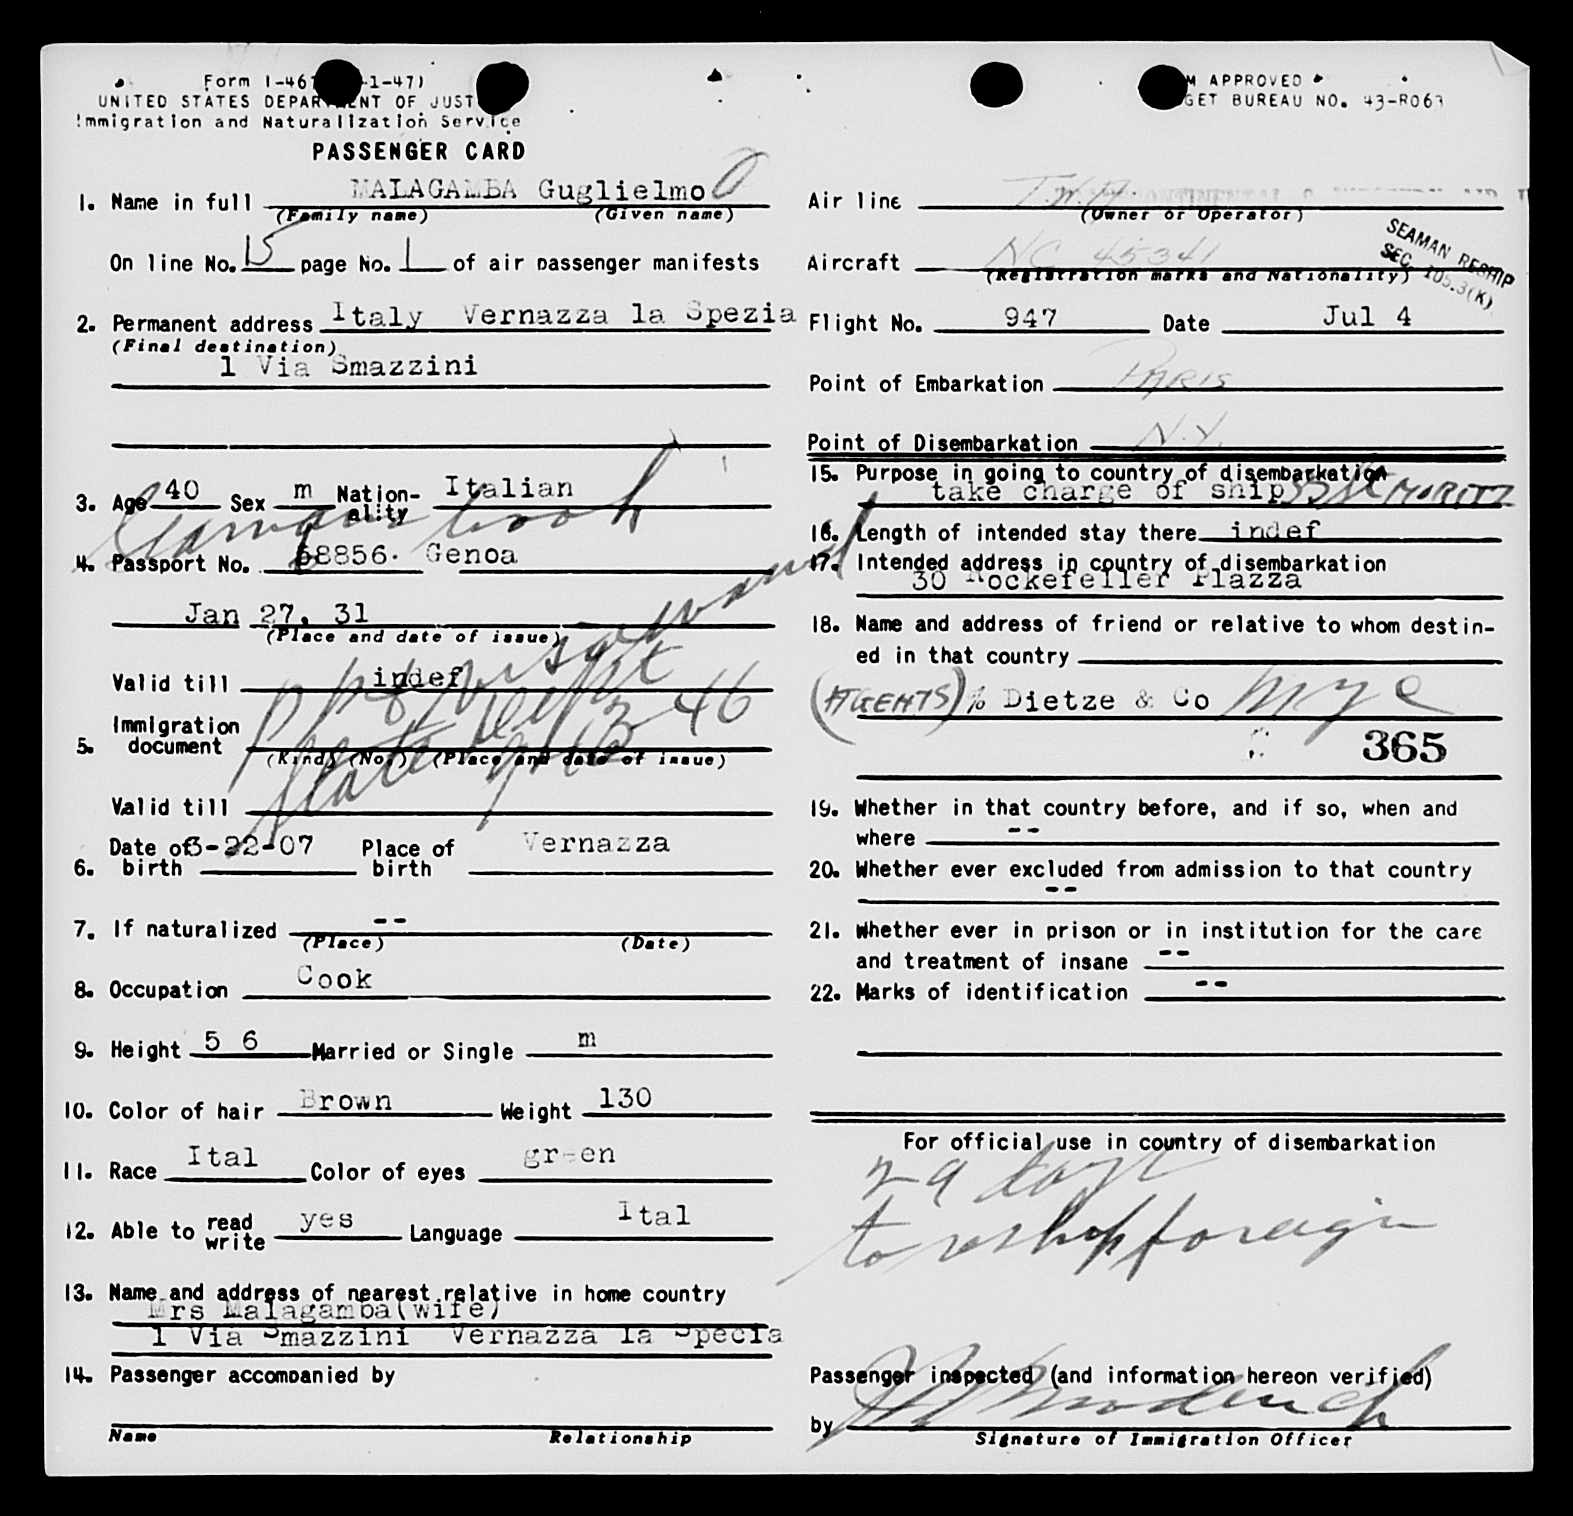 Form I-46 -1-47)
UNITED STATES DEPARTMENT OF JUST
Immigration and Naturalization Service
PASSENGER CARD
1. Name in full MALAGAMBA Guglielmo
(Family name) (Given name)
On line No. 15 page No. 1 of air passenger manifests
2. Permanent address Italy Vernazza la Spezia
(Final destination)
1 Via Smazzini
3. Age 40 Sex m Nation-ality Italian
Seaman cook
4. Passport No. 58856. Genoa
Jan 27, 31
(Place and date of issue)
Valid till indef
5. Immigration document
(Kind) (No.) (Place and date of issue)
State Dept
Valid till
6. Date of birth -22-07 Place of birth Vernazza
7. If naturalized --
(Place) (Date)
8. Occupation Cook
9. Height 5 6 Married or Single m
10. Color of hair Brown Weight 130
11. Race Ital Color of eyes green
12. Able to read write yes Language Ital
13. Name and address of nearest relative in home country
Mrs Malagamba(wife)
1 Via Smazzini Vernazza la Specia
14. Passenger accompanied by
Name Relationship
M APPROVED
GET BUREAU NO. 43-R063
Air line T.W.A.
(Owner or Operator)
SEAMAN RESHIP
SEC. 105.3(K)
Aircraft NC 45341
(Registration marks and Nationality)
Flight No. 947 Date Jul 4
Point of Embarkation PARIS
Point of Disembarkation N.Y.
15. Purpose in going to country of disembarkation
take charge of ship SS St MORITZ
16. Length of intended stay there indef
17. Intended address in country of disembarkation
30 Rockefeller Plazza
18. Name and address of friend or relative to whom destin-
ed in that country
(AGENTS) % Dietze & Co NYC
365
19. Whether in that country before, and if so, when and
where --
20. Whether ever excluded from admission to that country
--
21. Whether ever in prison or in institution for the care
and treatment of insane --
22. Marks of identification --
For official use in country of disembarkation
29 days
to reship foreign
Passenger inspected (and information hereon verified)
by
Signature of Immigration Officer